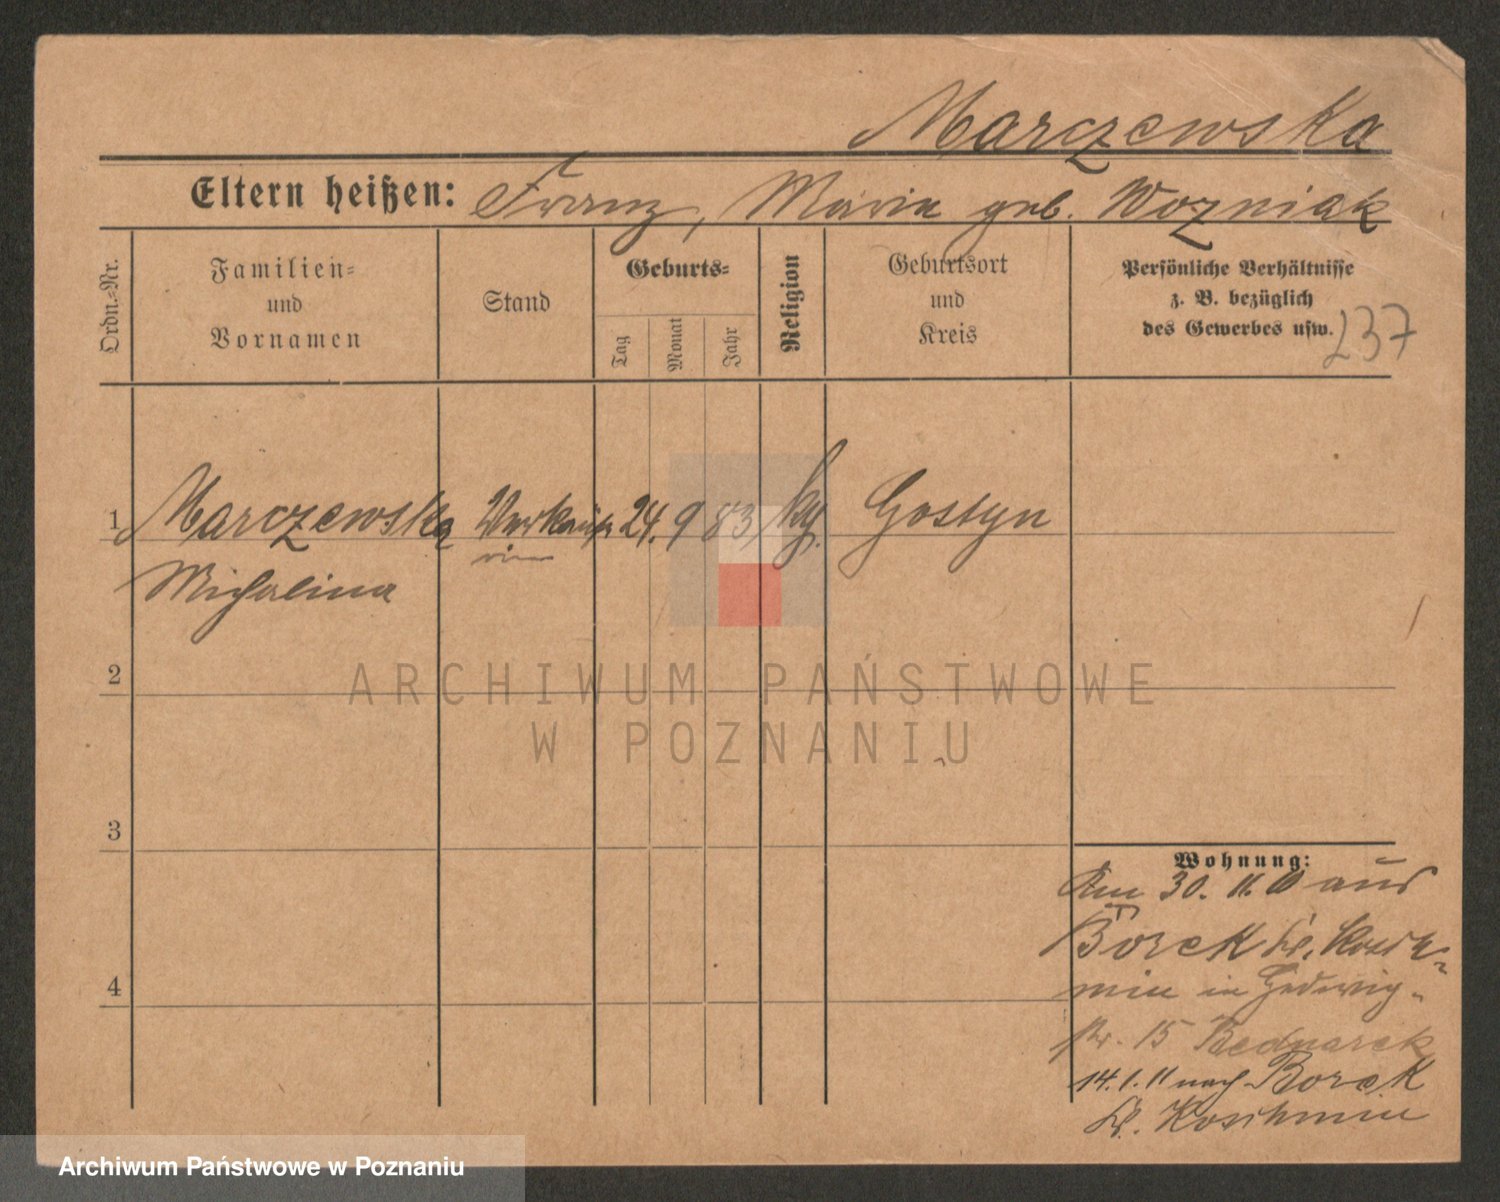 Marczewska
Eltern heißen: Franz, Maria geb. Wozniak
Ordn.-Nr.
Familien-
und
Vornamen
Stand
Geburts-
Tag
Monat
Jahr
Religion
Geburtsort
und
Kreis
Persönliche Verhältnisse
z. B. bezüglich
des Gewerbes usw.
237
1 Marczewska Verkäufe 24. 9 83 kg. Gostyn
rin
Michalina
2
ARCHIWUM PAŃSTWOWE
W POZNANIU
3
Wohnung:
Am 30. 11. 10 aus
Borek Kr. Kosch-
min in Hedwig-
str. 15 Bednarek
14.1.11 nach Borek
Kr. Koschmin
4
Archiwum Państwowe w Poznaniu